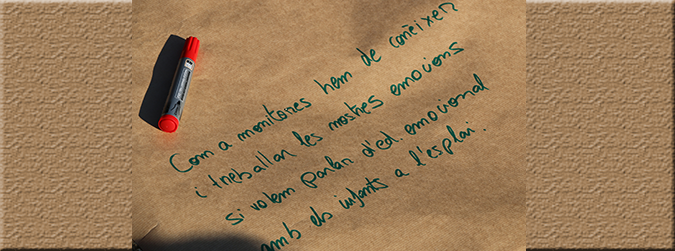 Com a monitores hem de coneixer
i treballar les nostres emocions
si volem parlar d'ed. emocional
amb els infants a l'esplai.